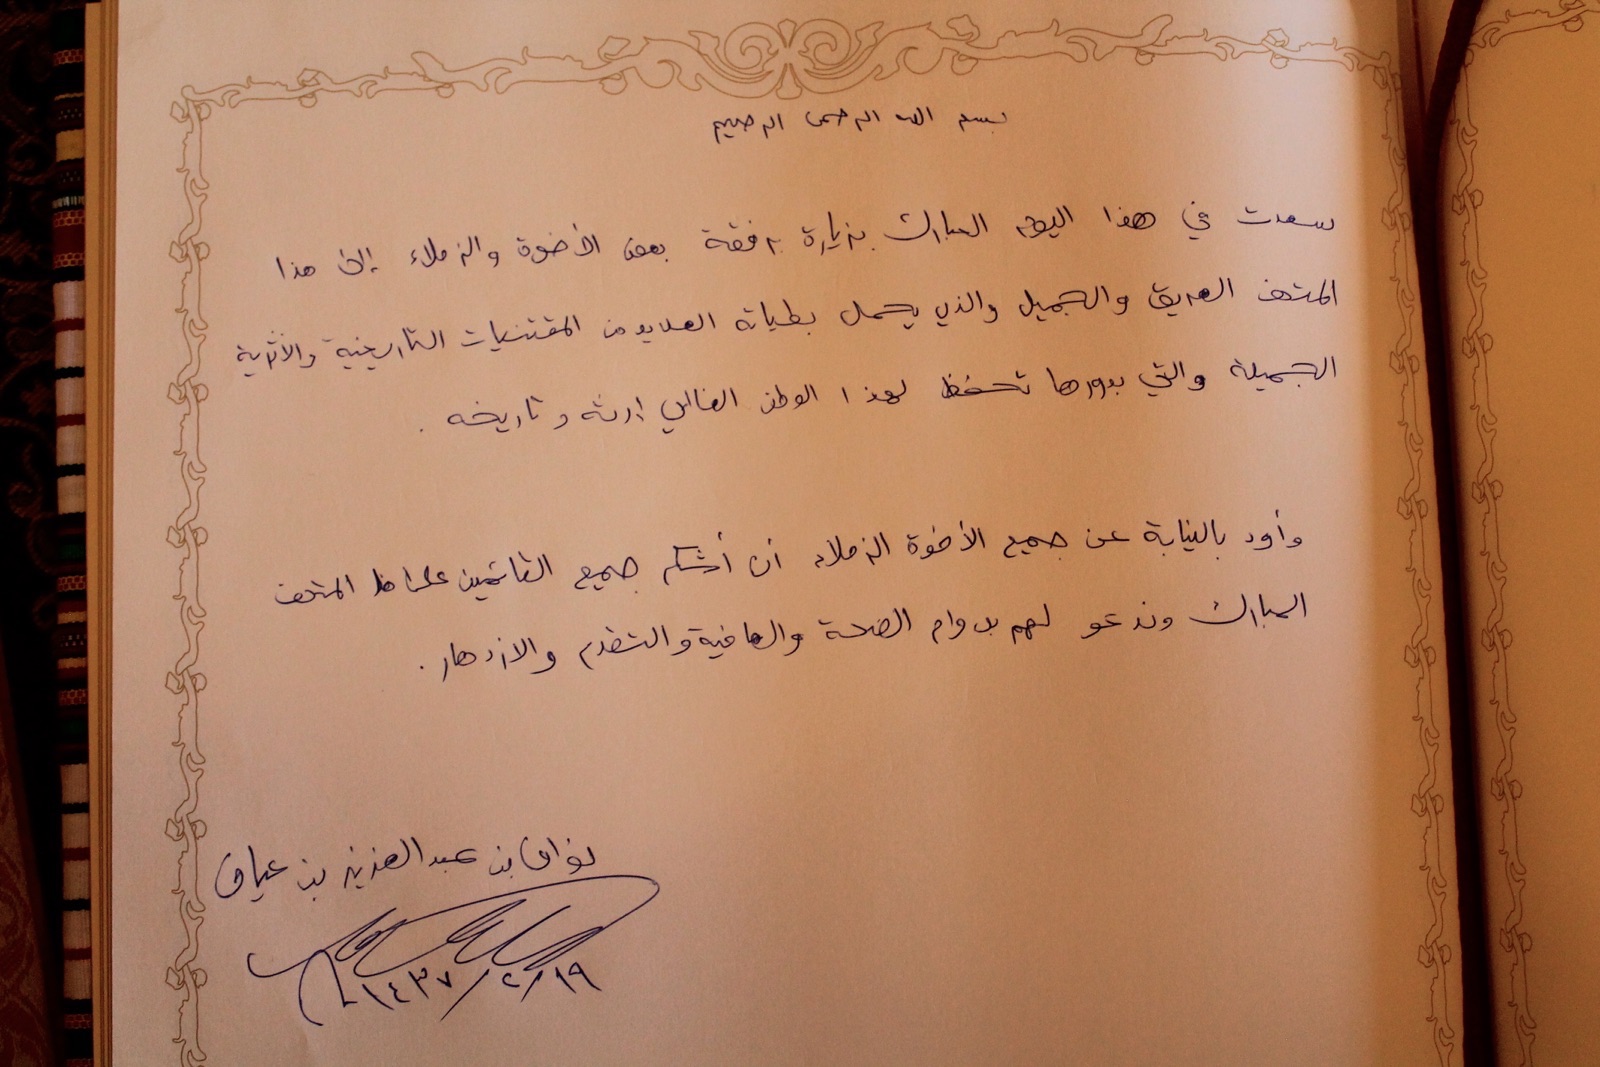 بسم الله الرحمن الرحيم
سعدت في هذا اليوم المبارك بزيارة برفقة بعض الأخوة والزملاء إلى هذا
المتحف العريق والجميل والذي يحمل بطياته العديد من المقتنيات التاريخية والأثرية
الجميلة والتي بدورها تحفظ لهذا الوطن الغالي إرثه وتاريخه .
وأود بالنيابة عن جميع الأخوة الزملاء أن أشكر جميع القائمين على هذا المتحف
المبارك وندعو لهم بدوام الصحة والعافية والتقدم والازدهار .
نواف بن عبد العزيز بن عياف
١٩/٢/١٤٣٧هـ